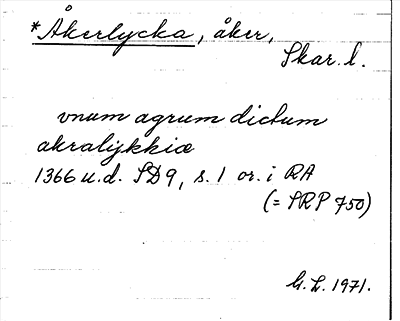 *Åkerlycka, åker,
Skar. l.
vnum agrum dictum
akralykkiæ
1366 u.d. SD9, s. 1 or. i RA
(= SRP 750)
G. L. 1971.